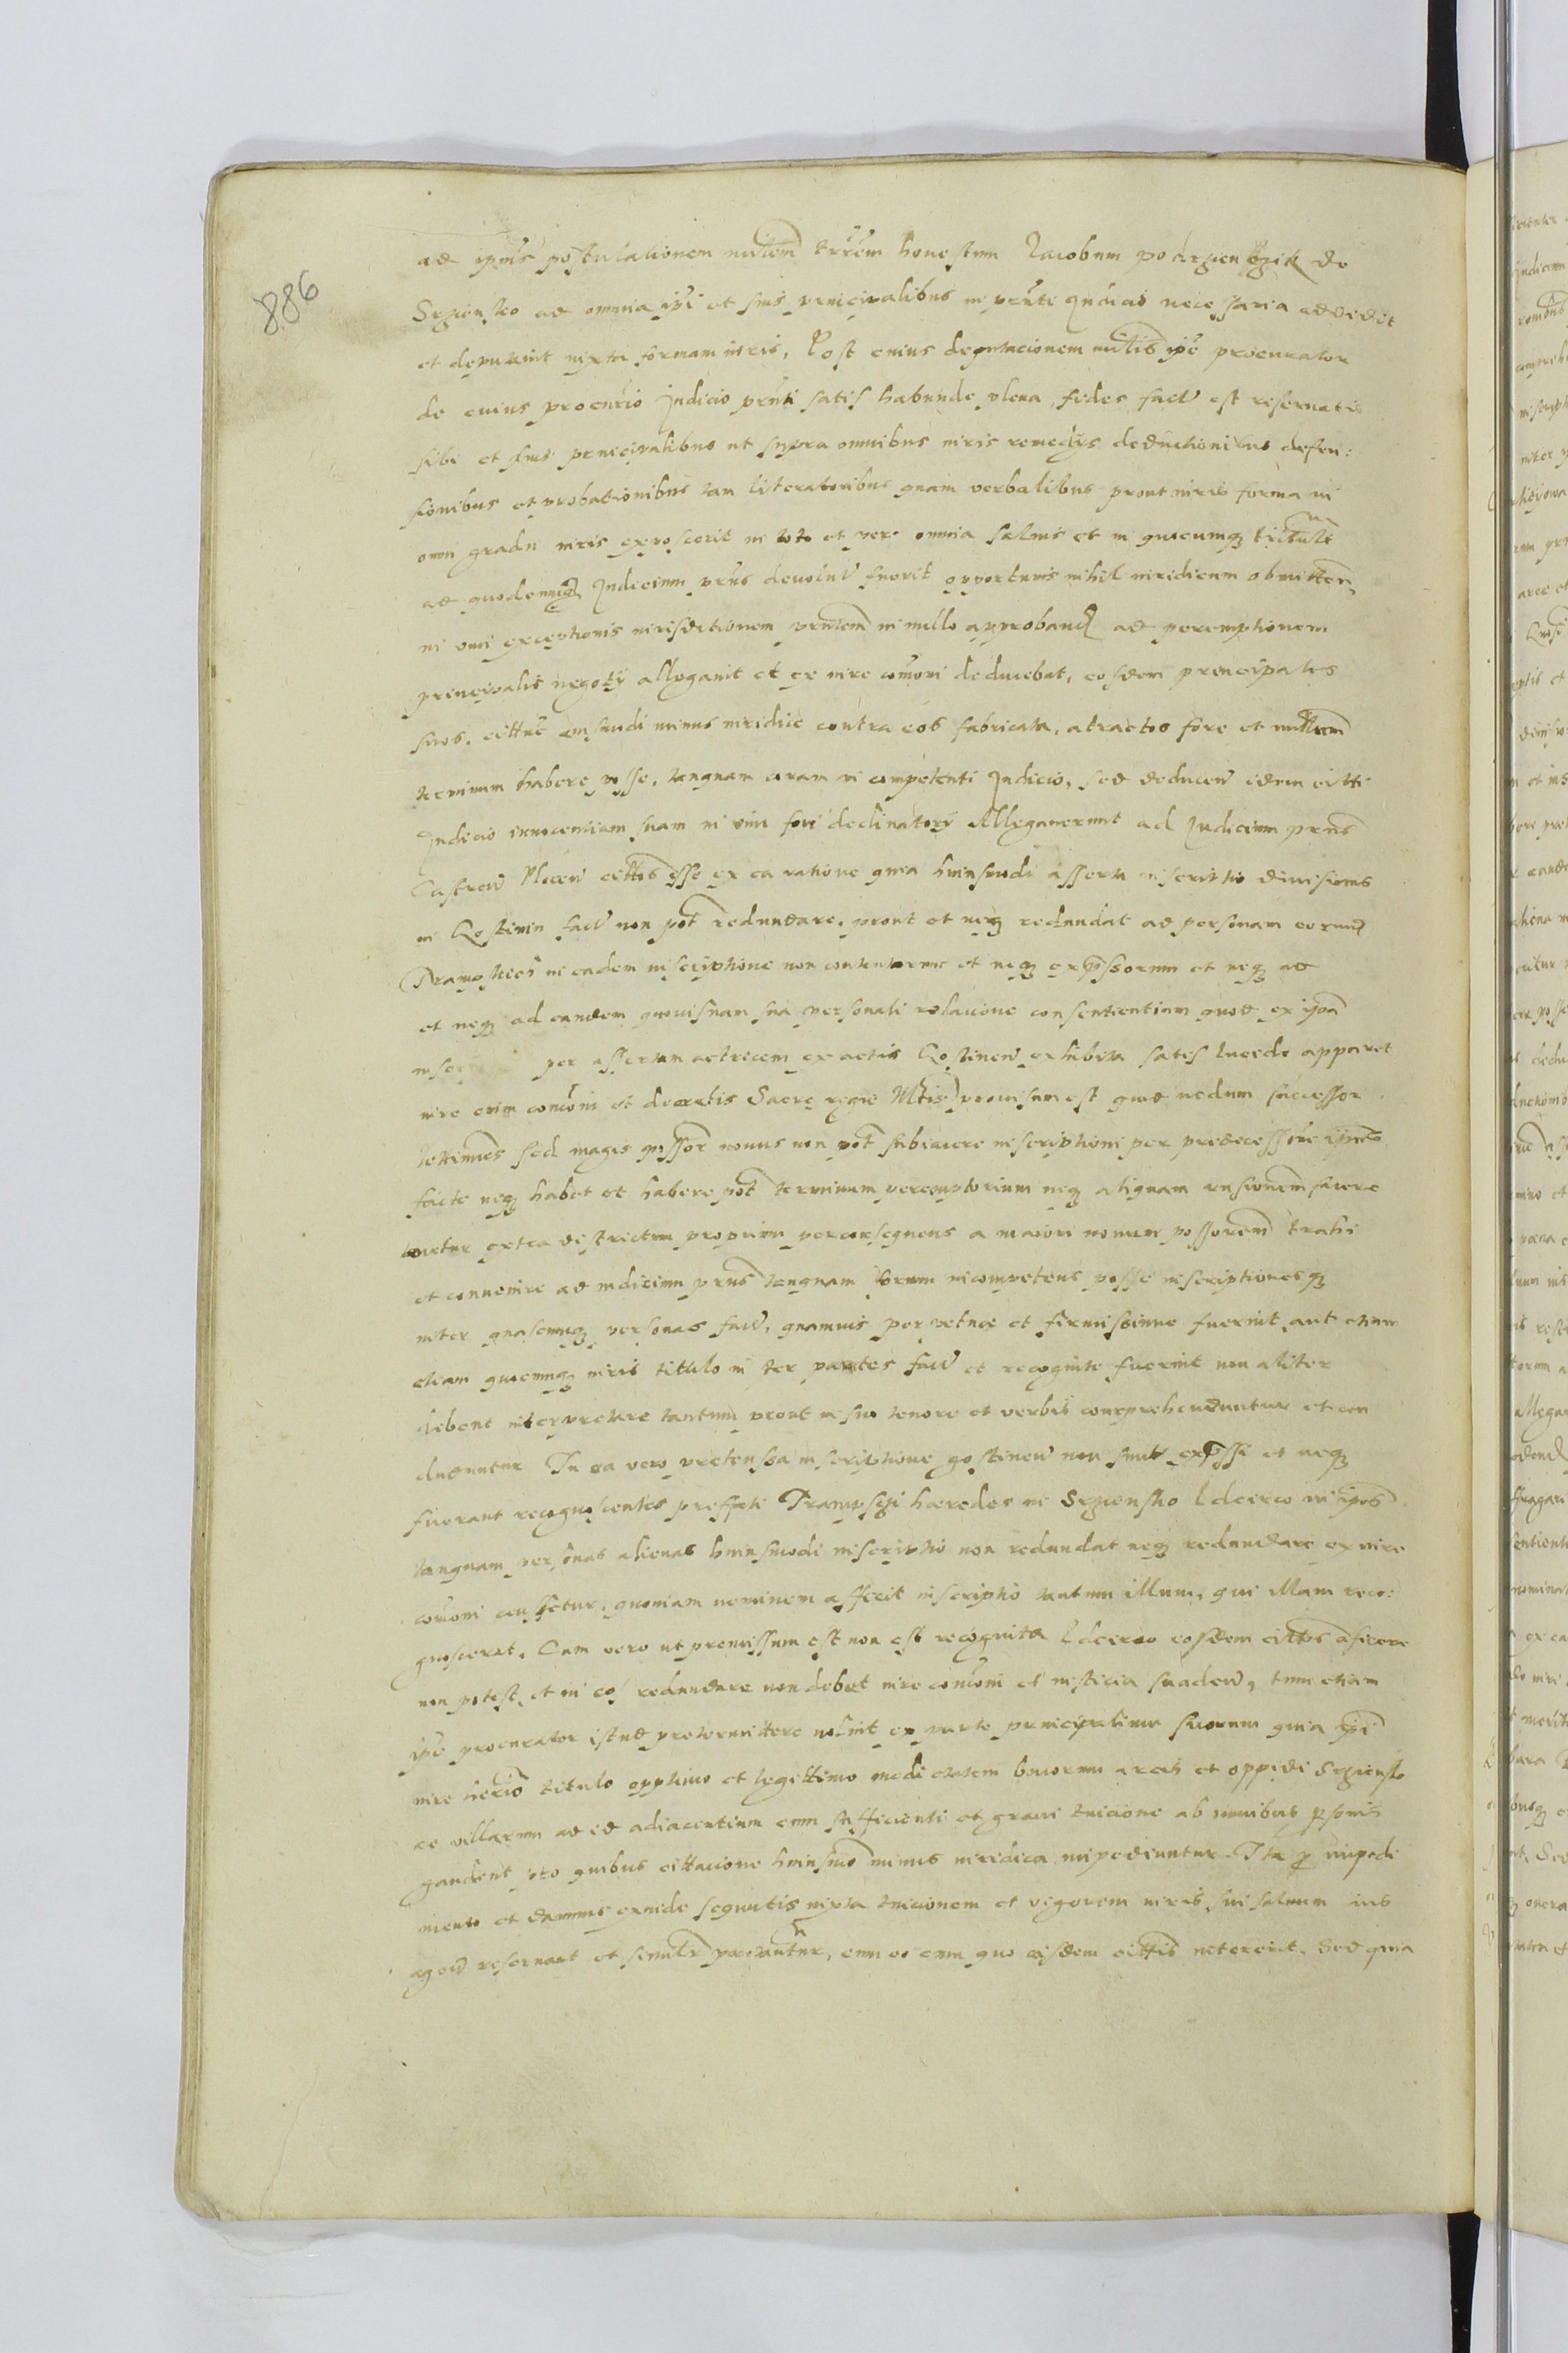 886
ad ipius postulationem mltem trrem honestum Jacobum podrzenszik de
Srzensko ad omnia ipi et suis principalibus in prnti Judicio necessaria addidit
et deputavit iuxta formam iuris, Post cuius deputacionem mltis ipe procurator
de cuius procurio Judicio prnti satis habunde plena fides fact est reservatis
sibi et suis principalibus ut supra omnibus iuris remedijs deductionibus defen:
sionibus et probationibus tam literatoribus quam verbalibus prout iuris forma in
omni gradu iuris exposcerit in toto et per omnia salvis et in quocumq titulo
ad quodcunq Judicium prns devolut fuerit opportunis nihil iuridicum obmitten
in vim exceptionis iurisditionem prntem in nullo approband ad peremptionem
principalis negotij allegavit et ex iure comuni deducebat, eosdem principales
suos, cittne emsmodi minus iuridice contra eos fabricata, atractos fore et nullum
terminum habere posse, tanquam coram in competenti Judicio, sed deducen eidem citti
Judicio innocentiam suam in vim fori declinatorij Allegaverunt ad Judicium prns
Castren Plocen cittos esse ex ea ratione quia huiusmodi asserta inscriptio divisionis
in Gostinin fact non pot redundare, prout et neq redundat ad personam eorund
Trampsczi in eadem inscriptione non contentorum et neq expssorum et neq ad
et neq ad eandem quovisnam sua personali relacione consentientium quod ex ipa
inscr per assertam actricem ex actis Gostinen exhibita satis lucide apparet
iure enim comuni et decretis Sacre regie Mtis provisum est quod nedum successor
lettimus sed magis possor novus non pot subiacere inscriptioni per predecessore ipius
facte neq habet et habere pot terminum peremptorium neq aliquam rnsionem facere
tenetur extra districtum proprium perconsequens a maiori novum possorem trahi
et convenire ad iudicium prns tanquam forum incompetens posse inscriptionesq
inter quascunq personas fact, quamvis perpetuae et firmissime fuerint aut etiam
etiam quocunq iuris titulo in ter partes fact et recognite fuerint non aliter
debent interpretare tantum prout in suo tenore et verbis comprehenduntur et con
cluduntur In ea vero pretensa inscriptione gostinen non sunt expssi et neq
fuerant recognoscentes prefati Trampsczi haeredes in Srzensko Idcirco in ipos
tanquam personas alienas huiusmodi inscriptio non redundat neq redundare ex iure
comuni censetur, quoniam neminem afficit inscriptio tantum illum, qui illam reco:
gnoscerat. Cum vero ut premissum est non est recognita Idcirco eosdem cittos aficere
non potest, et in eos redundare non debet iure comuni et iusticia suaden, tum etiam
ipe procurator istud pretermittere noluit ex parte principalium suorum quia ipi
iure herio titulo optimo et legittimo medietatem bonorum arcis et oppidi Srzensko
ac villarum ad id adiacentium cum sufficienti et gravi tuicione ab omnibus psonis
gaudent pro quibus cittacione huiusmo minus iuridica impediuntur Ita p impedi
mento et damnis exinde sequutis iuxta tuicionem et vigorem iuris sui salvum ius
agend reservant et similr protantur, cum eo cum quo eisdem cittis intererit. Sed quia